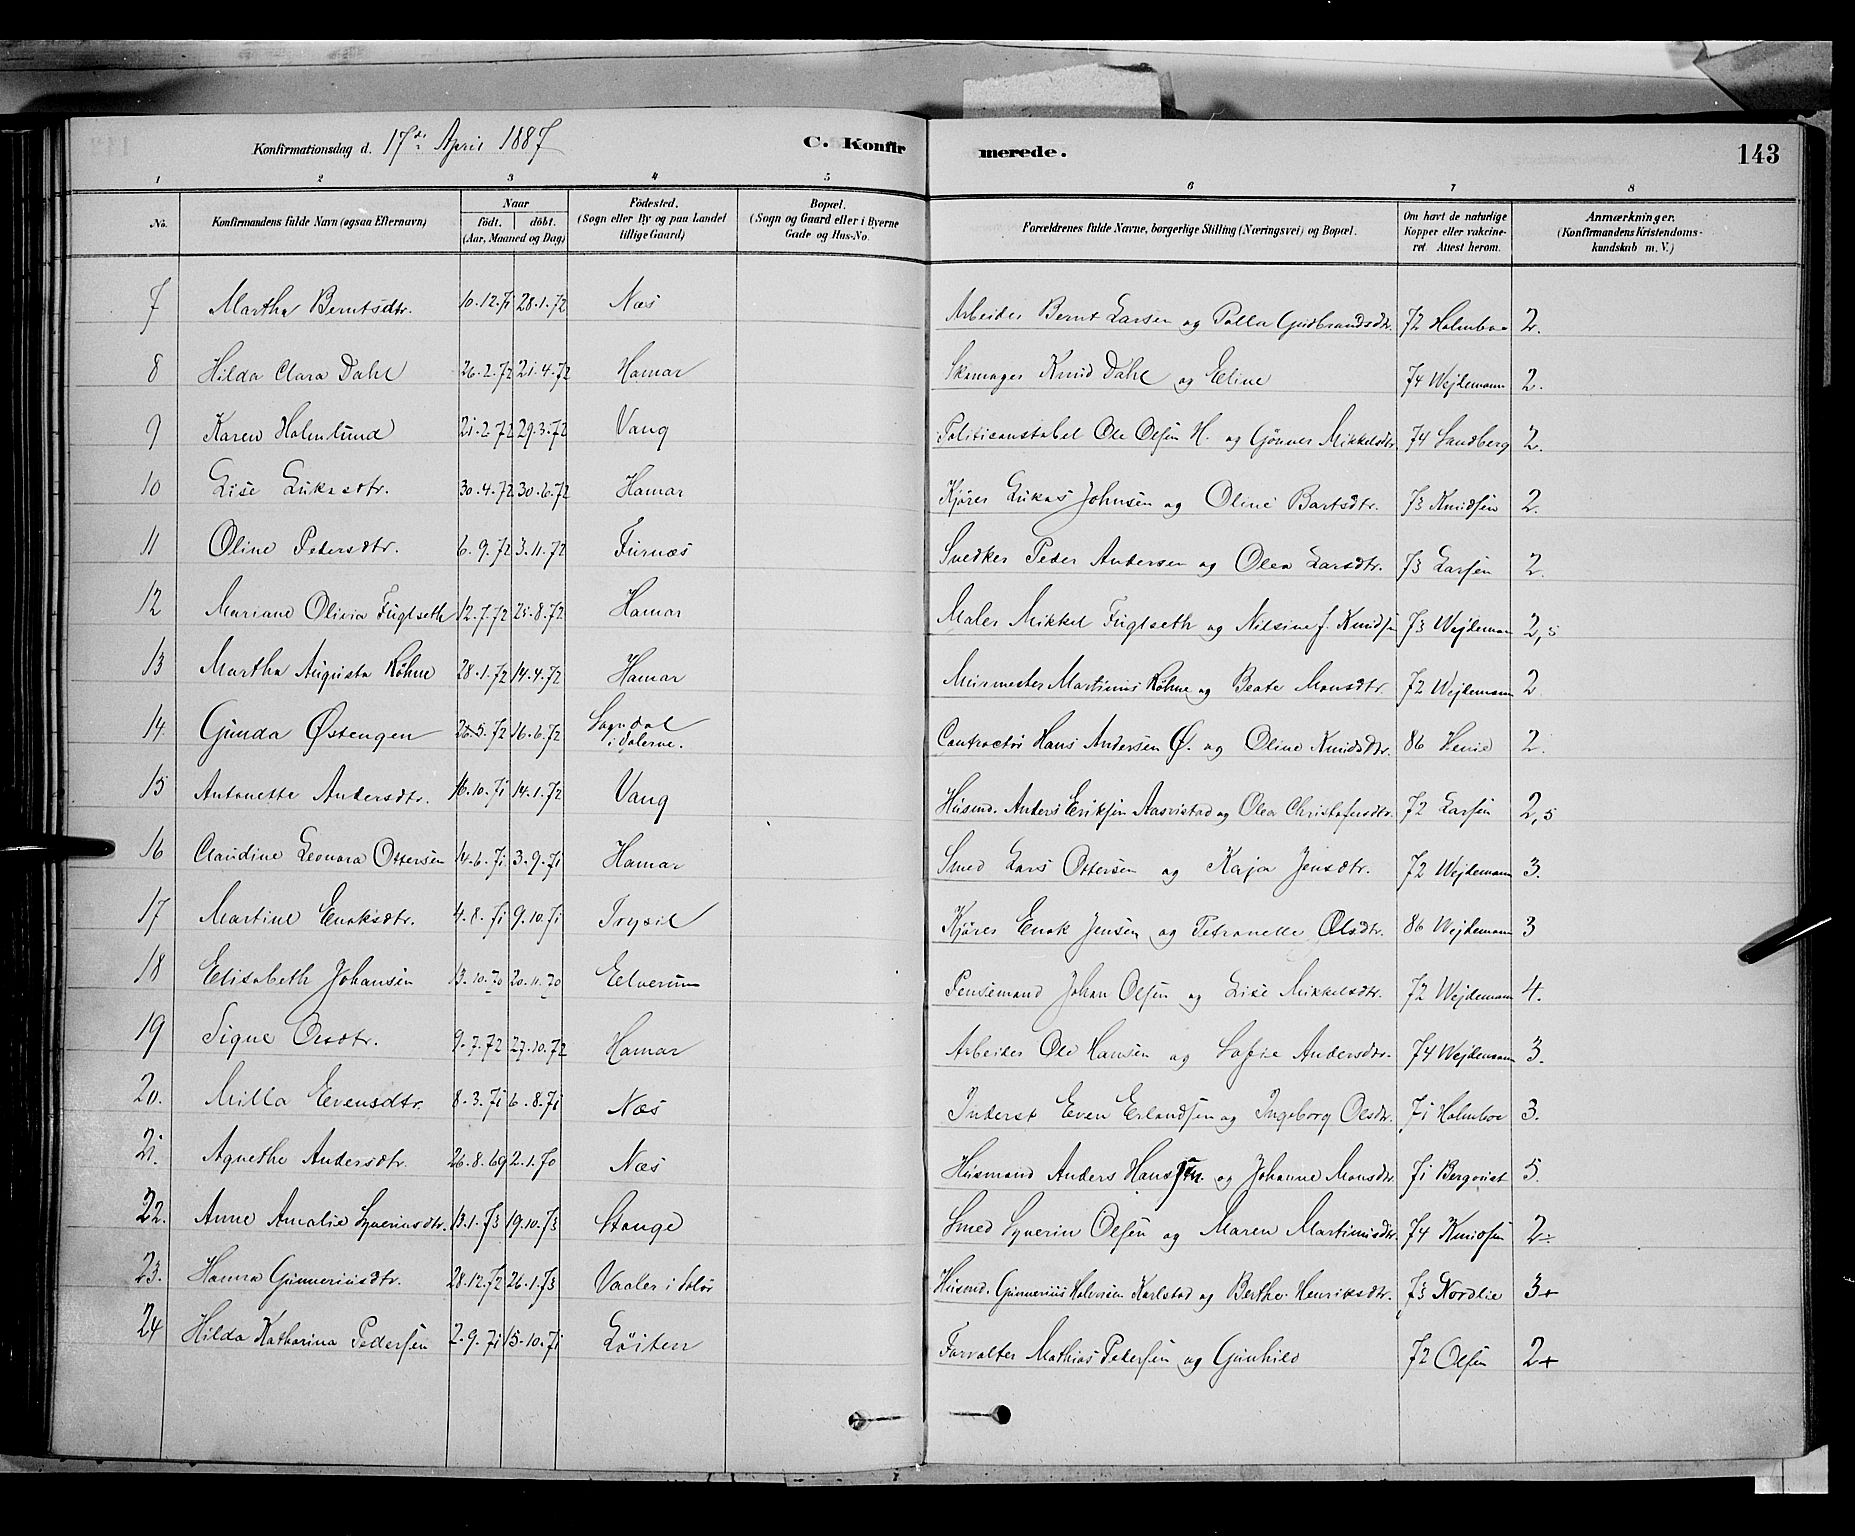 Konfirmationsdag d. 17de April 1887 C. Konfirmerede. 143
1 2 3 4 5 6 7 8
No. Konfirmandens fulde Navn (ogsaa Efternavn) Naar født. døbt. (Aar, Maaned og Dag) Fødested. (Sogn eller By og paa Landet tillige Gaard) Bopæl. (Sogn og Gaard eller i Byerne Gade og Hus-No. Forældrenes fulde Navne, borgerlige Stilling (Næringsvei) og Bopæl. Om havt de naturlige Kopper eller vakcineret. Attest herom. Anmærkninger. (Konfirmandens Kristendomskundskab m. V.)
7 Martha Berntsdtr. 10.12.71 28.1.72 Næs Arbeider Bernt Larsen og Polla Gudbrandsdtr. 72 Holmboe 2.
8 Hilda Clara Dahl 26.2.72 21.4.72 Hamar Skomager Knud Dahl og Eline 74 Wejdemann 2.
9 Karen Holmlund 21.2.72 29.3.72 Vang Politiconstabel Ole Olsen H. og Gønner Mikkelsdtr. 74 Sandberg 2.
10 Lise Lukasdtr. 30.4.72 30.6.72 Hamar Kjører Lukas Johnsen og Oline Bartsdtr. 73 Knudsen 2.
11 Oline Pedersdtr. 6.9.72 3.11.72 Furnæs Snedker Peder Andersen og Olea Larsdtr. 73 Larsen 2.
12 Mariane Olivia Fuglseth 12.7.72 25.8.72 Hamar Maler Mikkel Fuglseth og Nilsine f. Knudsen 73 Wejdemann 2,5
13 Martha Augusta Köhne 28.1.72 14.4.72 Hamar Murmester Martinius Köhne og Beate Monsdtr. 72 Wejdemann 2
14 Gunda Østengen 26.5.72 16.6.72 Sogndal i Dalerne. Contractør Hans Andersen Ø. og Oline Knudsdtr. 86 Henie 2.
15 Antonette Andersdtr. 16.10.71 14.1.72 Vang Husmd. Anders Eriksen Aasvistad og Olea Christofersdtr. 72 Larsen 2,5
16 Claudine Leonora Ottersen 14.6.71 3.9.71 Hamar Smed Lars Ottersen og Kaja Jensdtr. 72 Wejdemann 3.
17 Martine Enoksdtr. 4.8.71 9.10.71 Trysil Kjører Enok Jensen og Petronelle Olsdtr. 86 Wejdemann 3
18 Elisabeth Johansen 13.10.70 20.11.70 Elverum Pensemand Johan Olsen og Lise Mikkelsdtr. 72 Wejdemann 4.
19 Signe Olsdtr. 9.7.72 27.10.72 Hamar Arbeider Ole Hansen og Sofie Andersdtr. 74 Wejdemann 3.
20. Milla Evensdtr. 8.3.71 6.8.71 Næs Inderst Even Erlandsen og Ingeborg Olsdtr. 71 Holmboe 3.
21. Agnethe Andersdtr. 26.8.69 2.1.70 Næs Husmand Anders Hanssen. og Johanne Monsdtr. 71 Bergquist 5.
22. Anne Amalie Syverinsdtr. 13.1.73 19.10.73 Stange Smed Syverin Olsen og Maren Martinusdtr. 74 Knudsen 2÷
23. Hanna Gunneriusdtr. 28.12.72 26.1.73 Vaaler i Solør Husmd. Gunnerius Halvorsen Karlstad og Berthe Henriksdtr. 73 Nordlie 3+
24 Hilda Katharina Pedersen 2.9.71 15.10.71 Løiten Forvalter Mathias Pedersen og Gunhild 72 Olsen 2+